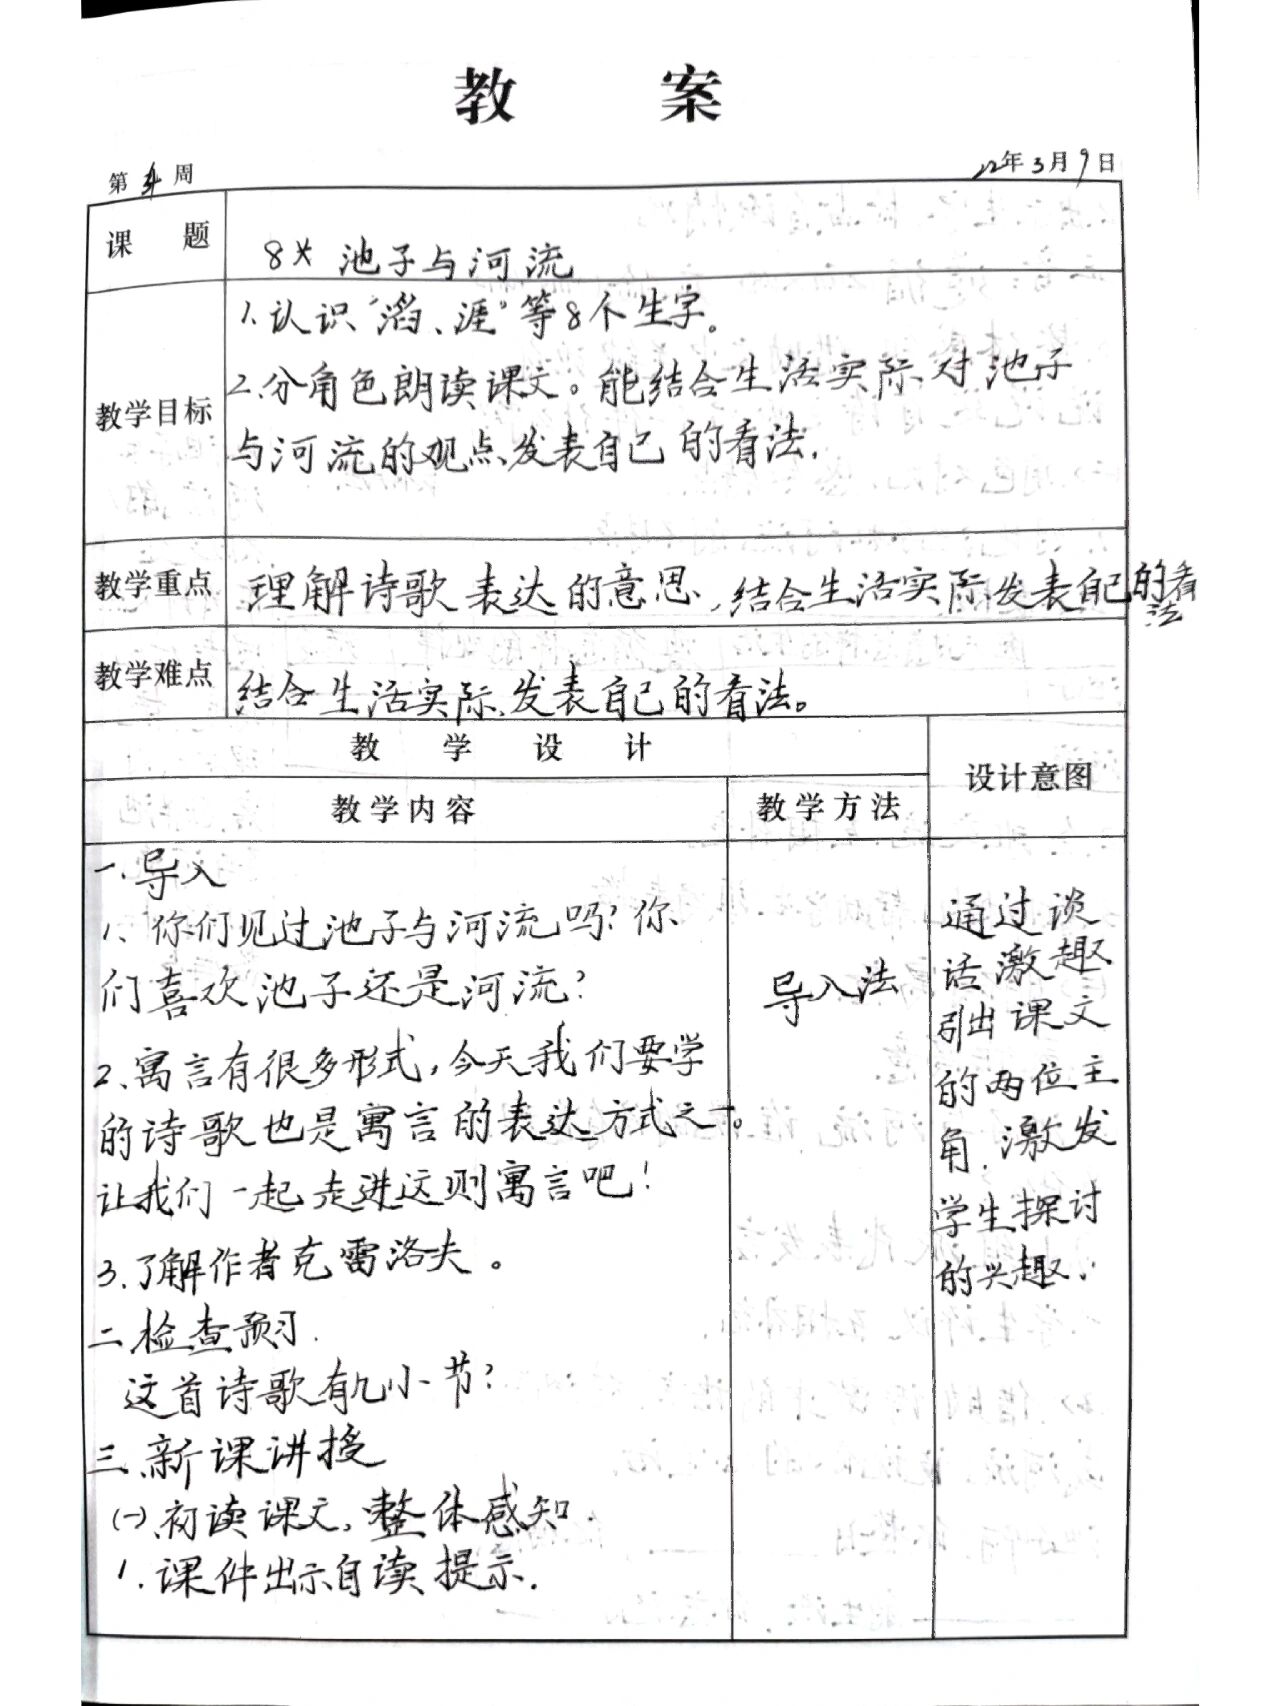 教 案
第 4 周
22年3月9日
课 题
8* 池子与河流
教学目标
1.认识“滔、涯”等8个生字。
2.分角色朗读课文。能结合生活实际对池子
与河流的观点发表自己的看法.
教学重点
理解诗歌表达的意思,结合生活实际发表自己的看
法
教学难点
结合生活实际、发表自己的看法。
教 学 设 计
设计意图
教学内容
教学方法
一.导入
1、你们见过池子与河流吗?你
们喜欢池子还是河流?
2、寓言有很多形式,今天我们要学
的诗歌也是寓言的表达方式之一。
让我们一起走进这则寓言吧!
3.了解作者克雷洛夫。
二、检查预习.
这首诗歌有几小节?
三、新课讲授
(一)、初读课文,整体感知.
1.课件出示自读提示.
导入法
通过谈
话激趣
引出课文
的两位主
角.激发
学生探讨
的兴趣.